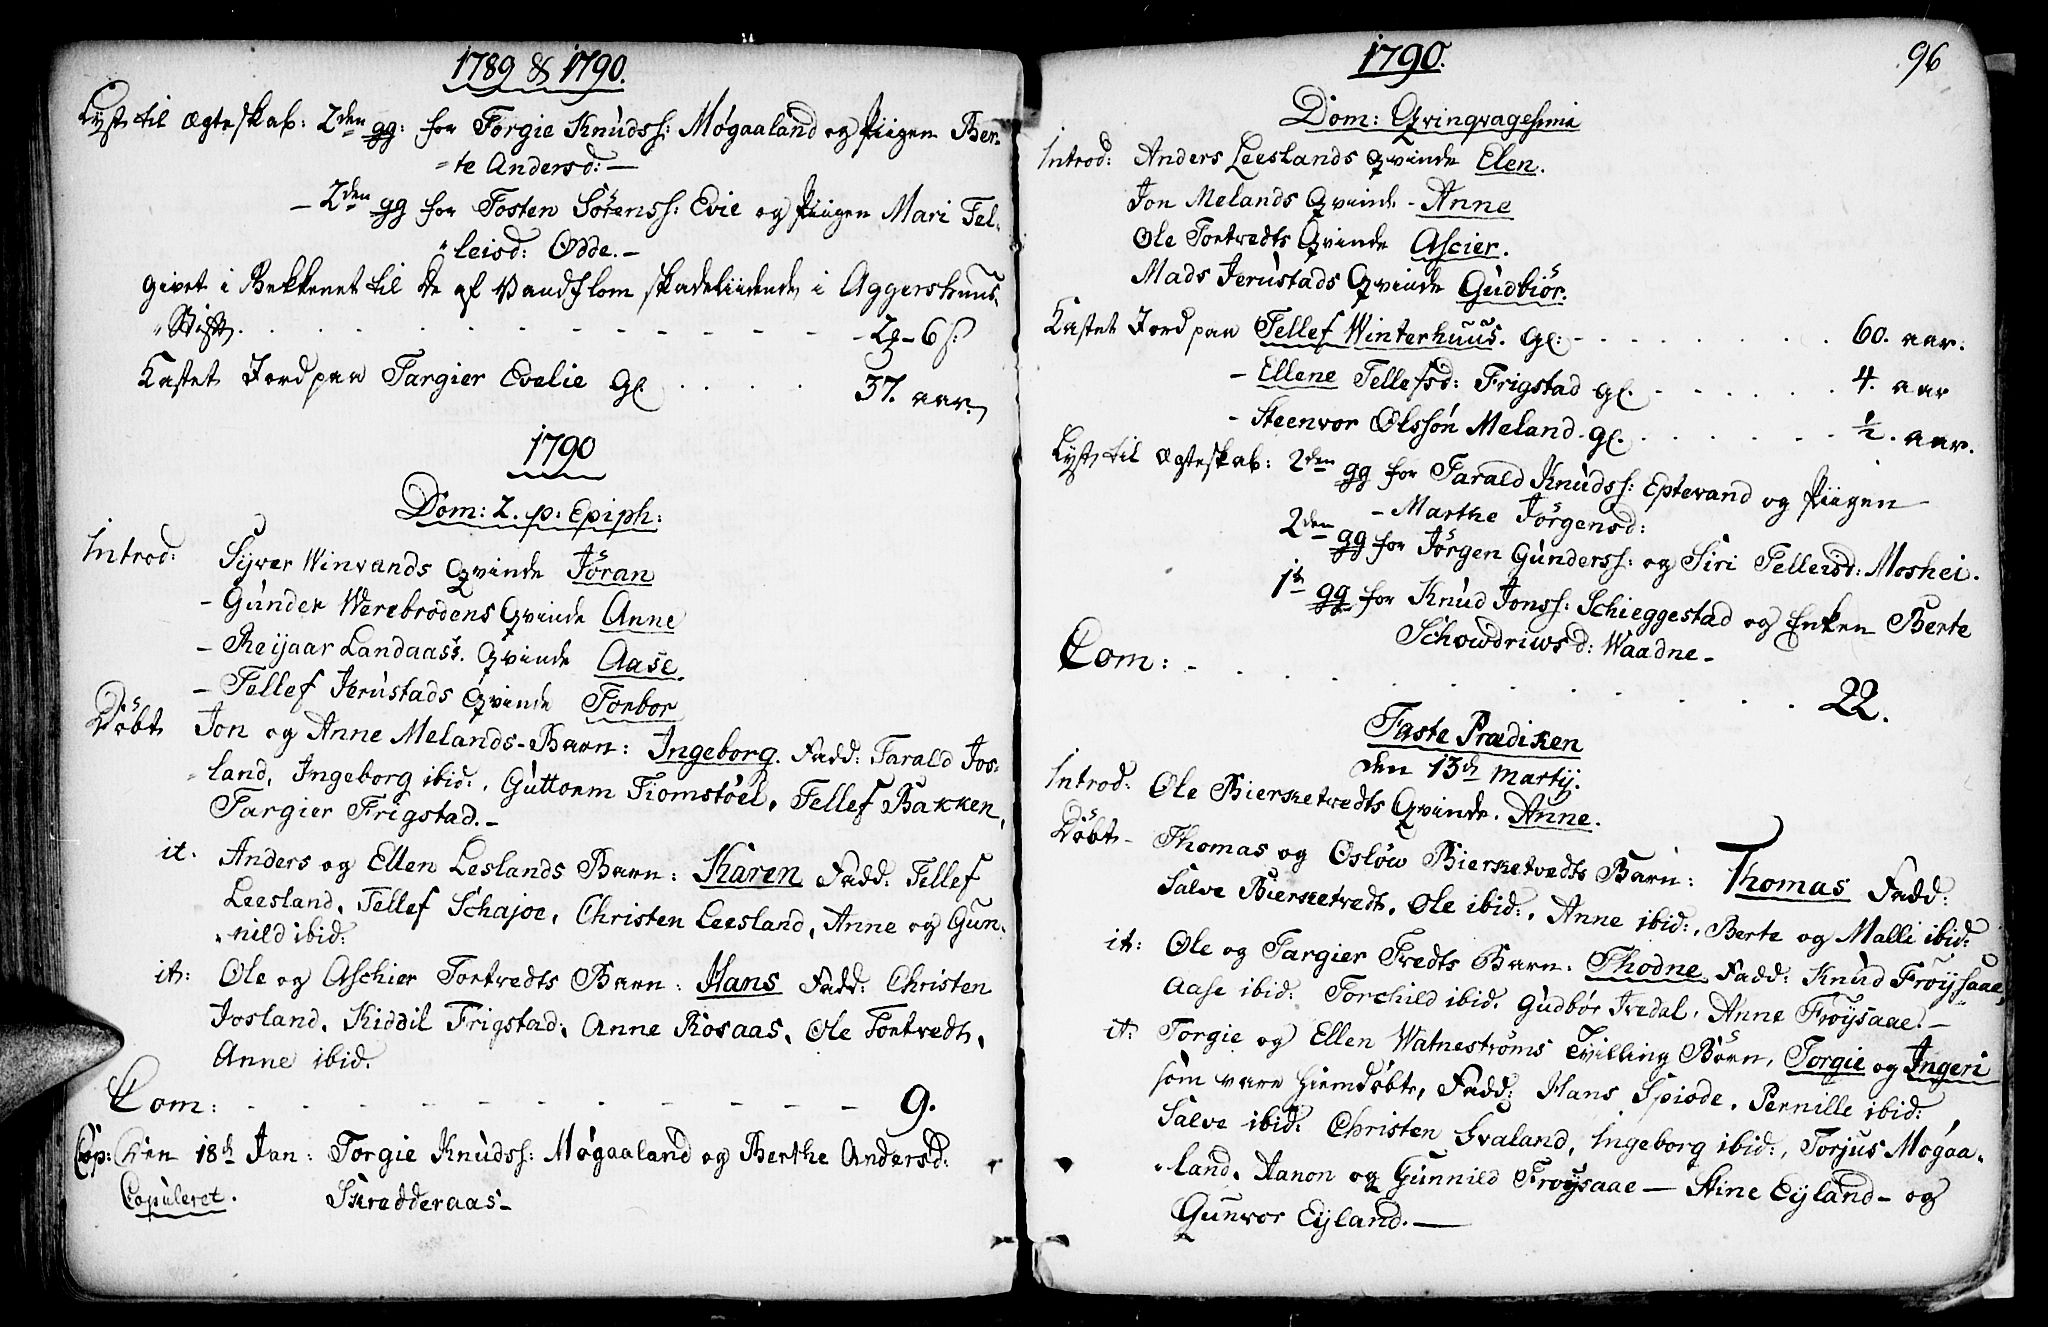 1789 & 1790.
Lyst til Ægteskab: 2den gg: for Torgie Knudss: Møgaaland og Piigen Ber-
te Andersd: —
— 2den gg for Tosten Sørenss: Evie og Piigen Mari Tel-
leisd: Odde. —
givet i Bekkenet til de af Vandflom skadeliidende i Aggershuus
Stift. - - - - 2 - 6 s:
Kastet Jord paa Targier Evelie gl. . . . . 37. aar.
1790
Dom: 2. p: Epiph:
Introd: Syver Winvands Qvinde Jöran
- Gunder Werebrodens Qvinde Anne
- Reijaar Landaass. Qvinde Aase.
- Tellef Jerustads Qvinde Torbor
Döbt Jon og Anne Melands Barn: Ingeborg. Fadd: Tarald Jos-
land, Ingeborg ibid:, Guttorm Tiomstøel, Tellef Bakken,
Targier Frigstad. —
it: Anders og Ellen Leslands Barn: Karen Fadd: Tellef
Leesland, Tellef Schajoe, Christen Leesland, Anne og Gun-
nild ibid:
it: Ole og Aschier Tortvedts Barn: Hans Fadd: Christen
Josland, Kiddil Frigstad, Anne Rosaas, Ole Tortvedt,
Anne ibid.
Com: - - - - 9.
Cop: Den 18de Jan: Torgie Knudss: Møgaaland og Berthe Andersd:
Copuleret. Skredderaas —
1790. 96
Dom: Qvinqvagesima
Introd: Anders Leeslands Qvinde Elen.
Jon Melands Qvinde - Anne
Ole Tortvedts Qvinde Ascier.
Mads Jerustads Qvinde Gudbiör.
Kastet Jord paa Tellef Winterhuus. gl: - - - - 60. aar.
- Ellene Tellefsd: Frigstad gl. - - - - 4. aar
- Steenvor Olssön Meland - gl. . . . . ½. aar.
Lyst til Ægteskab: 2den gg for Tarald Knudss: Eptevand og Piigen
- Marthe Jörgensd:
2den gg for Jörgen Gunderss: og Siri Telleisd: Moshei.
1te gg for Knud Jonss: Schieggestad og Enken Berte
Schowdriwsd: Waadne —
Com: - - - - 22.
Faste Prædiken
den 13de Martij.
Introd: Ole Bierketvedts Qvinde. Anne.
Döbt - Thomas og Oslöw Bierketvedts Barn: Thomas Fadd:
Salve Bierketvedt, Ole ibid:, Anne ibid:, Berte og Malli ibid:
it: Ole og Targier Tredts Barn: Thodne Fadd: Knud Fröysaae,
Aase ibid: Torchild ibid. Gudbör Ivedal, Anne Fröysaae. —
it: Torgie og Ellen Watneströms Tvilling Börn, Torgie og Ingeri
som vare hiemdöbte, Fadd: Hans Spiode, Pernille ibid:
Salve ibid: Christen Ivaland, Ingeborg ibid:, Torjus Møgaa-
land, Aanon og Gunnild Frøysaae — Stine Eyland - og
Gunvor Eyland. —